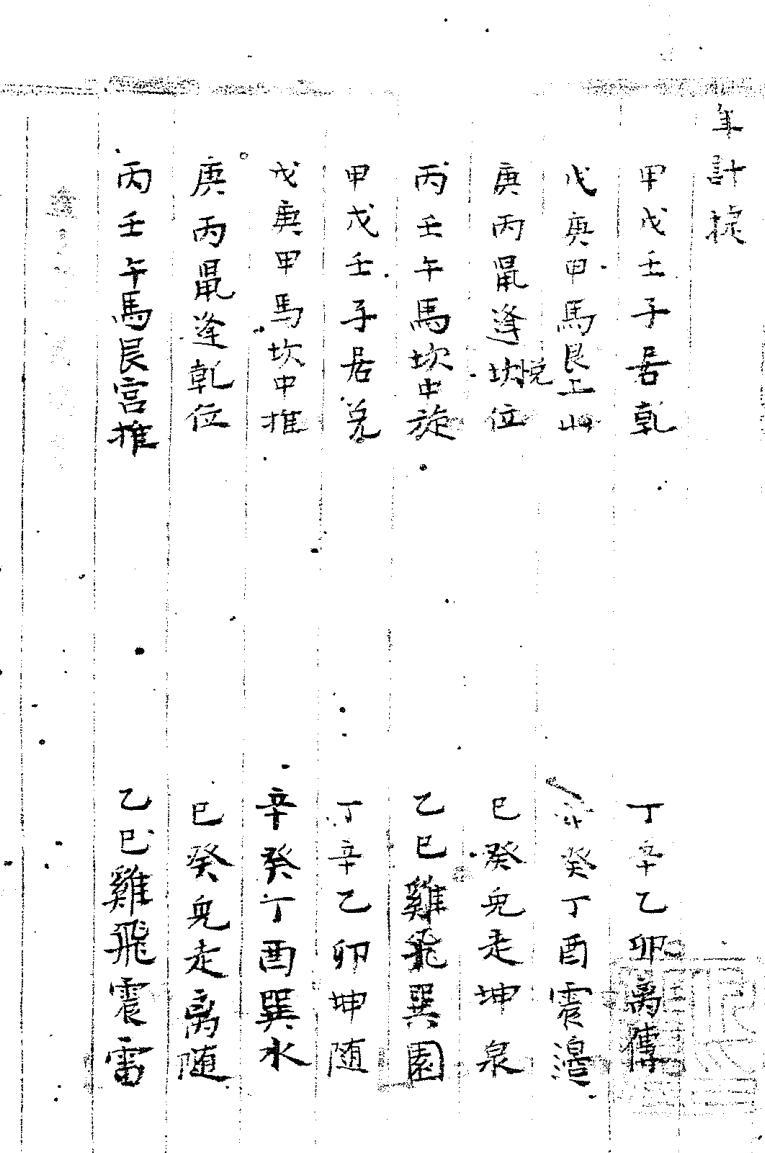 年計捸
甲戊壬子居乾
丁辛乙卯离傳
戊庚甲馬艮上山
辛癸丁酉震邉
庚丙鼠逢坎位
悅
巳癸兎走坤泉
丙壬午馬坎中旋
乙巳雞飛巽園
甲戊壬子居兑
丁辛乙卯坤随
戊庚甲馬坎中推
辛癸丁酉巽水
庚丙鼠逢乾位
巳癸兎走离随
丙壬午馬艮宮推
乙巳雞飛震雷